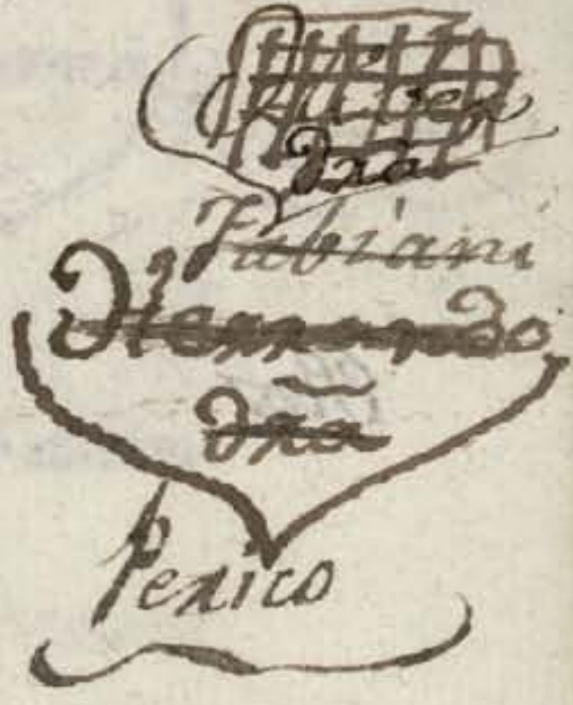 dra
Fabiani
Hernando
dra
Perico